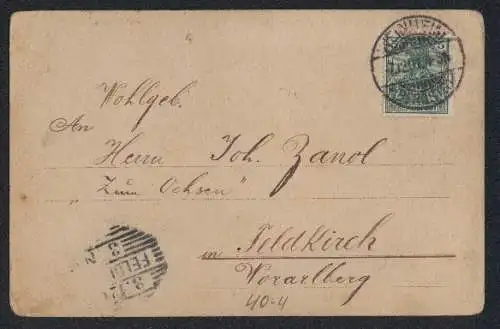 Wohlgeb.
An
Herrn Joh. Zanol
„Zum Ochsen"
in Feldkirch
Vorarlberg
40-4
FELD